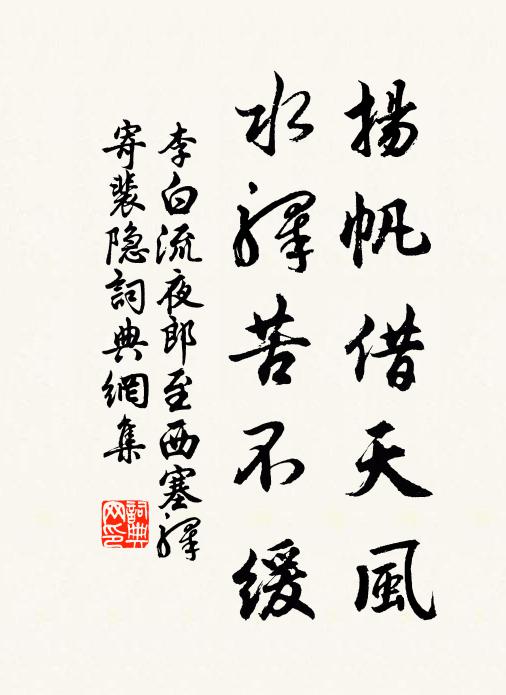 揚帆借天風
水驛苦不緩
李白流夜郎至西塞驛
寄裴隐詞典網集
詞典網印